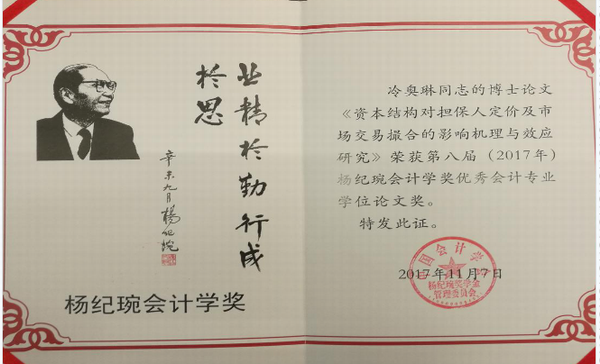 业精於勤行成
於思
辛未九月 杨纪琬
杨纪琬会计学奖
冷奥琳同志的博士论文
《资本结构对担保人定价及市
场交易撮合的影响机理与效应
研究》荣获第八届（2017年）
杨纪琬会计学奖优秀会计专业
学位论文奖。
特发此证。
中国会计学会
杨纪琬奖学金
管理委员会
2017年11月7日